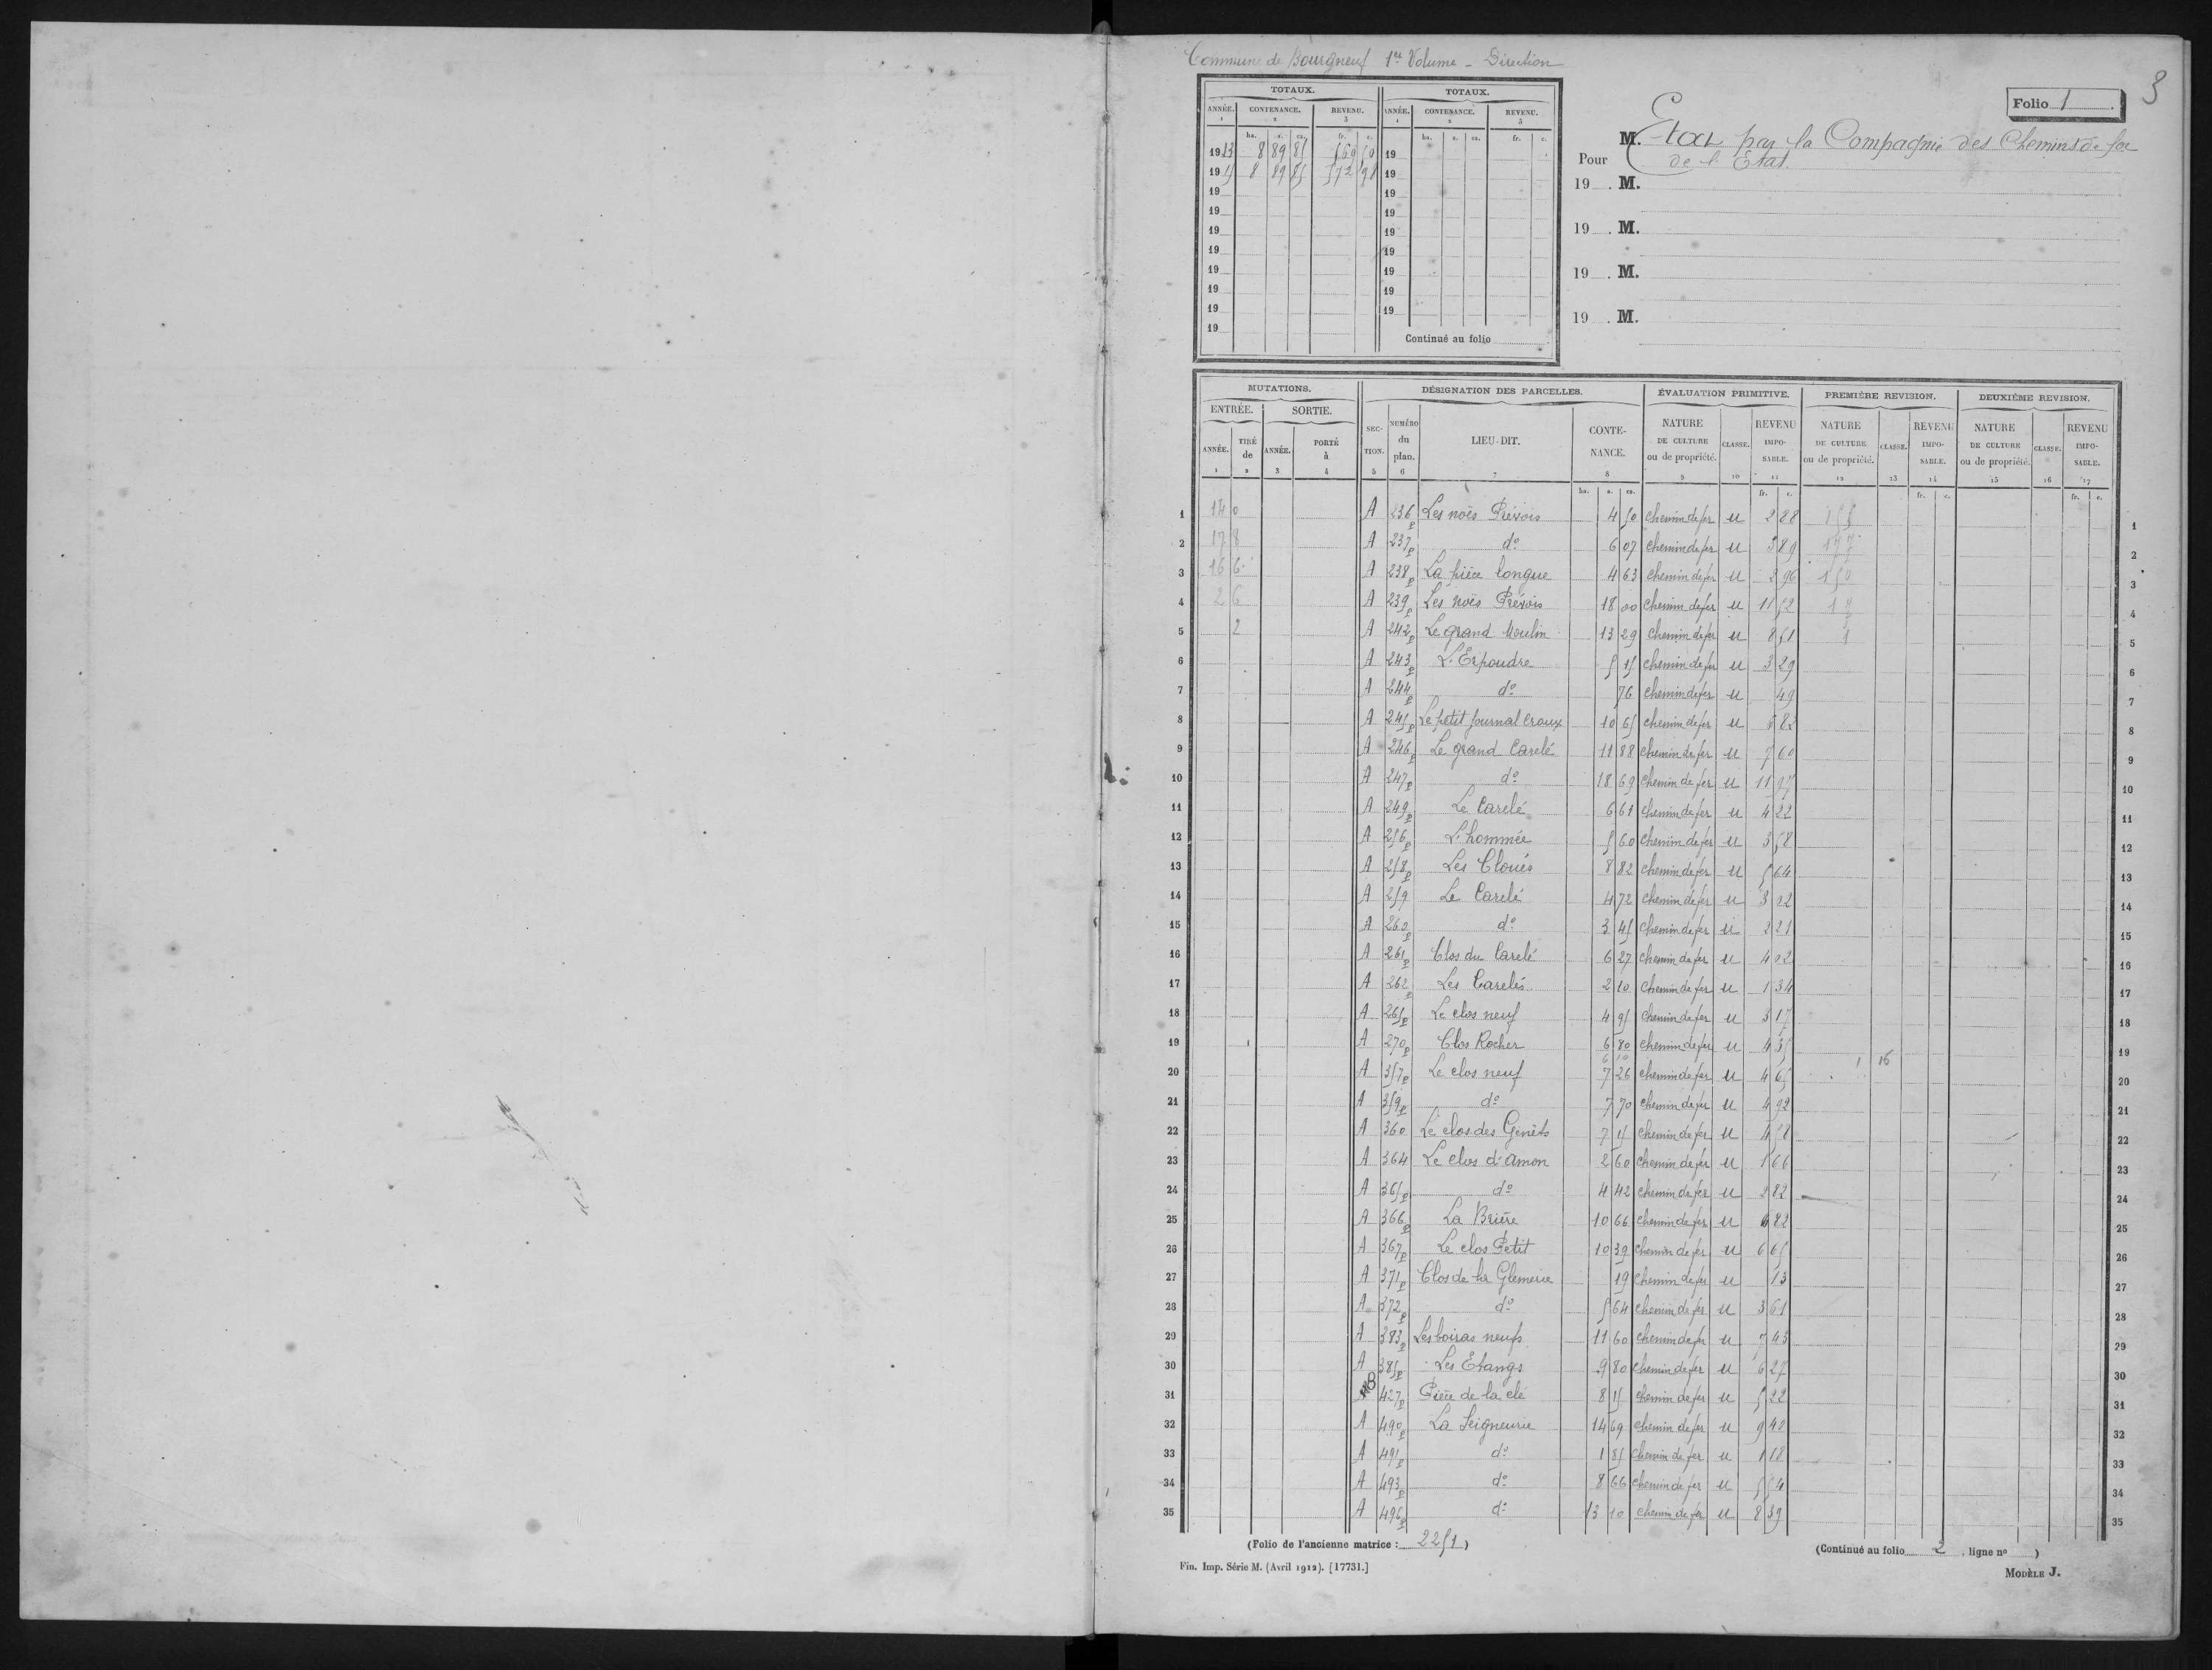 Commune de Bourgneuf 1er Volume - Direction
3
Folio 1
TOTAUX. TOTAUX.
ANNÉE. CONTENANCE. REVENU. ANNÉE. CONTENANCE. REVENU.
1 2 3 1 2 3
ha. a. ca. fr. c. ha. a. ca. fr. c.
1913 8 89 85 569 50 19
19 15 8 89 85 572 98 19
19 19
19 19
19 19
19 19
19 19
19 19
19 19
19
Continué au folio
M. Etat par la Compagnie des Chemins de fer
Pour de l'Etat.
19 . M.
19 . M.
19 . M.
19 . M.
MUTATIONS. DÉSIGNATION DES PARCELLES. ÉVALUATION PRIMITIVE. PREMIÈRE REVISION. DEUXIÈME REVISION.
ENTRÉE. SORTIE.
ANNÉE. TIRÉ de ANNÉE. PORTÉ à SECTION. NUMÉRO du plan. LIEU-DIT. CONTENANCE. NATURE DE CULTURE ou de propriété. CLASSE. REVENU IMPOSABLE. NATURE DE CULTURE ou de propriété. CLASSE. REVENU IMPOSABLE. NATURE DE CULTURE ou de propriété. CLASSE. REVENU IMPOSABLE.
1 2 3 4 5 6 7 8 9 10 11 12 13 14 15 16 17
ha. a. ca. fr. c. fr. c. fr. c.
1 14 0 A 236p Les noës Prévois 4 50 chemin de fer u 2 88 1
2 17 8 A 237p do 6 07 chemin de fer u 3 89 2
3 16 6 A 238p La pièce longue 4 63 chemin de fer u 2 96 3
4 2 6 A 239p Les noës Prévois 18 00 chemin de fer u 11 52 4
5 2 A 242p Le grand Moulin 13 29 chemin de fer u 8 51 5
6 A 243p L'Erpoudre 5 15 chemin de fer u 3 29 6
7 A 244p do 76 chemin de fer u 49 7
8 A 245p Le petit journal Craux 10 65 chemin de fer u 6 82 8
9 A 246p Le grand Carelé 11 88 chemin de fer u 7 60 9
10 A 247p do 18 69 chemin de fer u 11 97 10
11 A 249p Le Carelé 6 61 chemin de fer u 4 22 11
12 A 256p L'hommée 5 60 chemin de fer u 3 58 12
13 A 258p Les Cloués 8 82 chemin de fer u 5 64 13
14 A 259 Le Carelé 4 72 chemin de fer u 3 02 14
15 A 260p do 3 45 chemin de fer u 2 21 15
16 A 261p Clos du Carelé 6 27 chemin de fer u 4 02 16
17 A 262p Les Carelés 2 10 chemin de fer u 1 34 17
18 A 265p Le clos neuf 4 95 chemin de fer u 3 17 18
19 A 270p Clos Rocher 6 80 chemin de fer u 4 35 19
20 A 357p Le clos neuf 7 26 chemin de fer u 4 65 1 16 20
21 A 359p do 7 70 chemin de fer u 4 92 21
22 A 360 Le clos des Genêts 7 15 chemin de fer u 4 58 22
23 A 364 Le clos d'amon 2 60 chemin de fer u 1 66 23
24 A 365p do 4 42 chemin de fer u 2 82 24
25 A 366p La Brière 10 66 chemin de fer u 6 82 25
26 A 367p Le clos Petit 10 39 chemin de fer u 6 65 26
27 A 371p Clos de la Glemerie 19 chemin de fer u 13 27
28 A 372p do 5 64 chemin de fer u 3 61 28
29 A 383p Les boiras neufs 11 60 chemin de fer u 7 43 29
30 A 385p Les Etangs 9 80 chemin de fer u 6 27 30
31 427p Pièce de la clé 8 15 chemin de fer u 5 22 31
32 A 490p La Seigneurie 14 69 chemin de fer u 9 40 32
33 A 491p do 1 85 chemin de fer u 1 18 33
34 A 493p do 8 66 chemin de fer u 5 54 34
35 A 496p do 13 10 chemin de fer u 8 39 35
(Folio de l'ancienne matrice : 2251) (Continué au folio 2, ligne no )
Fin. Imp. Série M. (Avril 1912). [17731.] MODÈLE J.